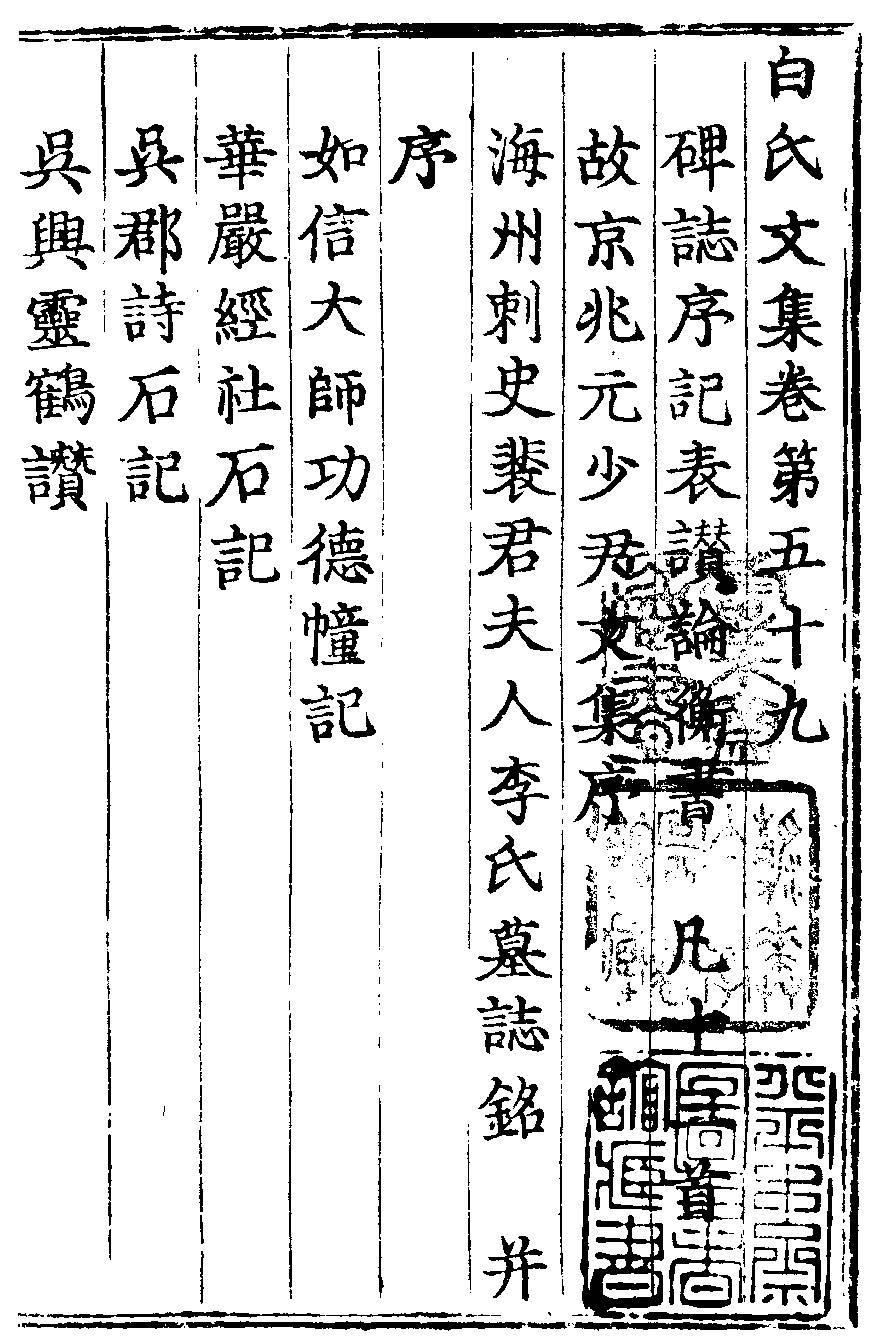 白氏文集卷第五十九
碑誌序記表讃論衡書 凡十首
故京兆元少尹文集序
海州刺史裴君夫人李氏墓誌銘 并
序
如信大師功德幢記
華嚴經社石記
吳郡詩石記
吳興靈鶴讚